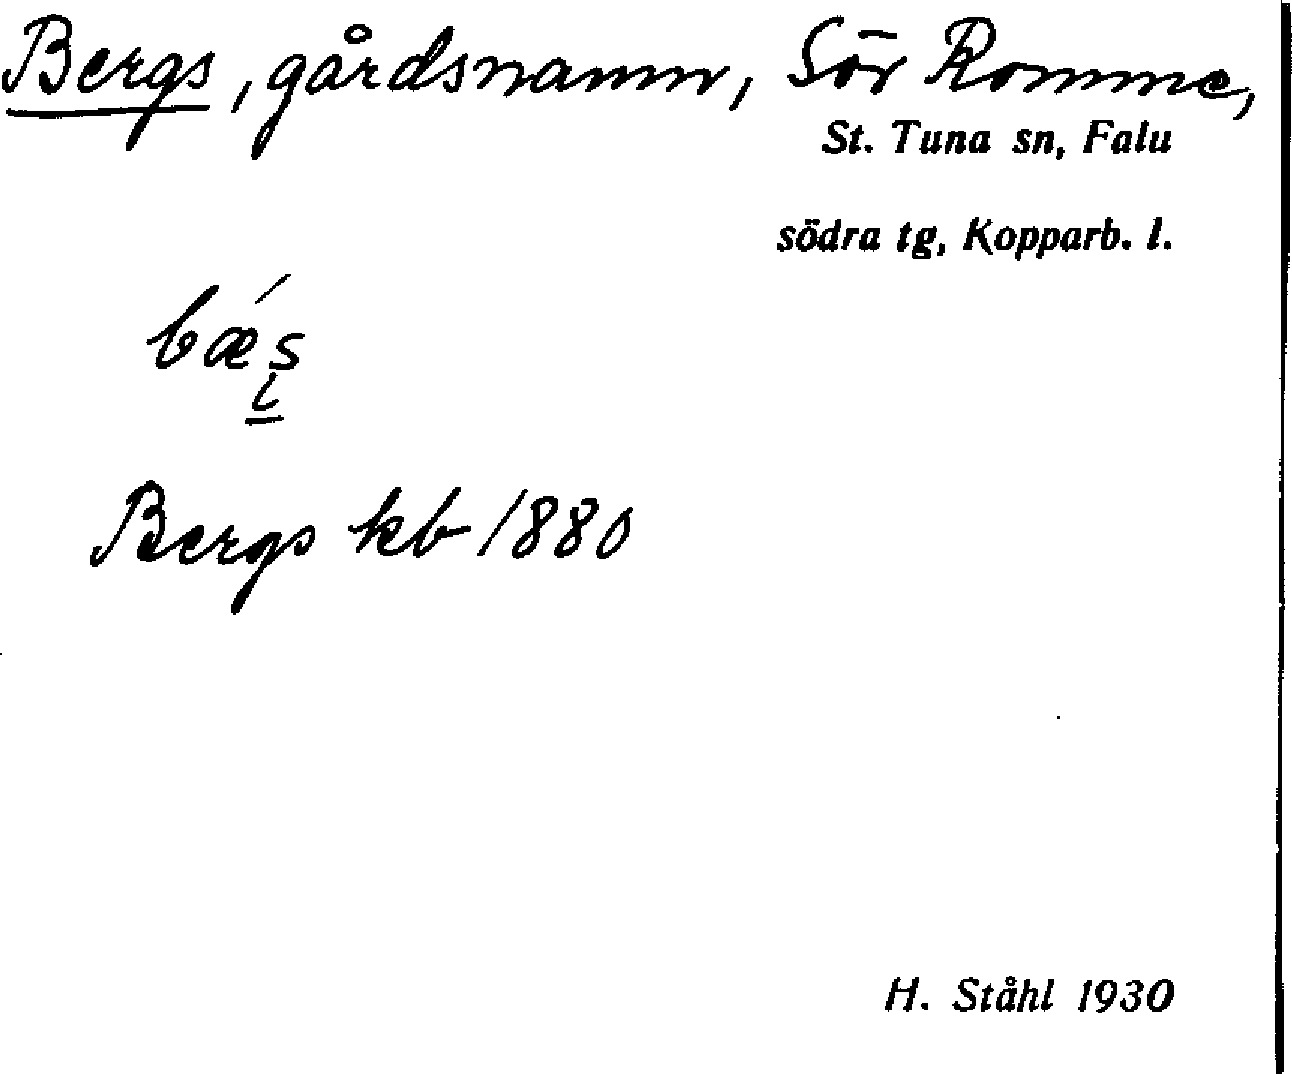 Bergs, gårdsnamn, Sör Romme,
St. Tuna sn, Falu
södra tg, Kopparb. l.
bǽs
Bergs kb 1880
H. Ståhl 1930